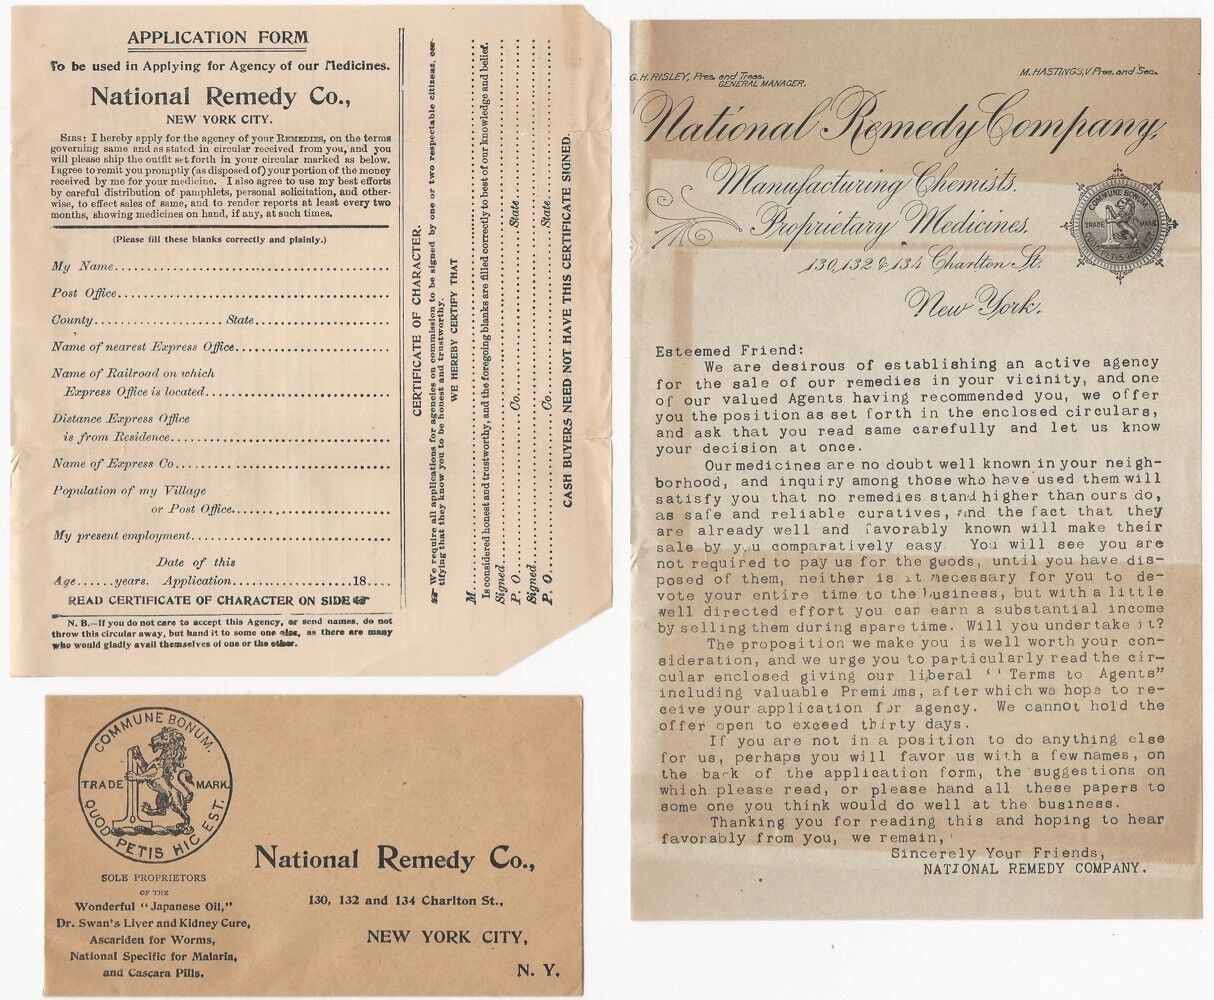 APPLICATION FORM
To be used in Applying for Agency of our Medicines.
National Remedy Co.,
NEW YORK CITY.
SIRS: I hereby apply for the agency of your REMEDIES, on the terms
governing same and as stated in circular received from you, and you
will please ship the outfit set forth in your circular marked as below.
I agree to remit you promptly (as disposed of) your portion of the money
received by me for your medicine. I also agree to use my best efforts
by careful distribution of pamphlets, personal solicitation, and other-
wise, to effect sales of same, and to render reports at least every two
months, showing medicines on hand, if any, at such times.
(Please fill these blanks correctly and plainly.)
My Name
Post Office
County State
Name of nearest Express Office
Name of Railroad on which
Express Office is located
Distance Express Office
is from Residence
Name of Express Co
Population of my Village
or Post Office
My present employment
Date of this
Age......years. Application 18....
READ CERTIFICATE OF CHARACTER ON SIDE
N. B.—If you do not care to accept this Agency, or send names, do not
throw this circular away, but hand it to some one else, as there are many
who would gladly avail themselves of one or the other.
CERTIFICATE OF CHARACTER.
We require all applications for agencies on commission to be signed by one or two respectable citizens, cer-
tifying that they know you to be honest and trustworthy.
WE HEREBY CERTIFY THAT
M
Is considered honest and trustworthy, and the foregoing blanks are filled correctly to best of our knowledge and belief.
Signed
P. O. Co. State
Signed
P. O. Co. State
CASH BUYERS NEED NOT HAVE THIS CERTIFICATE SIGNED.
COMMUNE BONUM.
TRADE MARK
QUOD PETIS HIC EST.
SOLE PROPRIETORS
OF THE
Wonderful "Japanese Oil,"
Dr. Swan's Liver and Kidney Cure,
Ascariden for Worms,
National Specific for Malaria,
and Cascara Pills.
National Remedy Co.,
130, 132 and 134 Charlton St.,
NEW YORK CITY,
N. Y.
G. H. RISLEY, Pres. and Treas.
GENERAL MANAGER.
M. HASTINGS, V Pres. and Sec.
National Remedy Company,
Manufacturing Chemists.
Proprietary Medicines.
130, 132 & 134 Charlton St.
New York.
COMMUNE BONUM
TRADE MARK
QUOD PETIS HIC EST
Esteemed Friend:
We are desirous of establishing an active agency
for the sale of our remedies in your vicinity, and one
of our valued Agents having recommended you, we offer
you the position as set forth in the enclosed circulars,
and ask that you read same carefully and let us know
your decision at once.
Our medicines are no doubt well known in your neigh-
borhood, and inquiry among those who have used them will
satisfy you that no remedies stand higher than ours do,
as safe and reliable curatives, and the fact that they
are already well and favorably known will make their
sale by you comparatively easy. You will see you are
not required to pay us for the goods, until you have dis-
posed of them, neither is it necessary for you to de-
vote your entire time to the business, but with a little
well directed effort you can earn a substantial income
by selling them during spare time. Will you undertake it?
The proposition we make you is well worth your con-
sideration, and we urge you to particularly read the cir-
cular enclosed giving our liberal ''Terms to Agents"
including valuable Premiums, after which we hope to re-
ceive your application for agency. We cannot hold the
offer open to exceed thirty days.
If you are not in a position to do anything else
for us, perhaps you will favor us with a few names, on
the back of the application form, the suggestions on
which please read, or please hand all these papers to
some one you think would do well at the business.
Thanking you for reading this and hoping to hear
favorably from you, we remain,
Sincerely Your Friends,
NATIONAL REMEDY COMPANY.